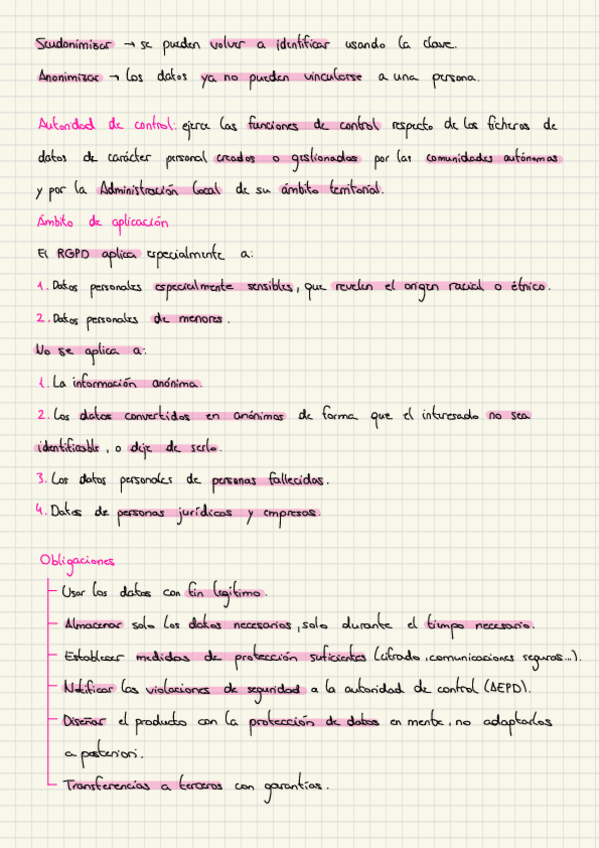 Seudonimizar → se pueden volver a identificar usando la clave.
Anonimizar → Los datos ya no pueden vincularse a una persona.
Autoridad de control: ejerce las funciones de control respecto de los ficheros de
datos de carácter personal creados o gestionados por las comunidades autónomas
y por la Administración Local de su ámbito territorial.
Ámbito de aplicación
El RGPD aplica especialmente a:
1. Datos personales especialmente sensibles, que revelen el origen racial o étnico.
2. Datos personales de menores.
No se aplica a:
1. La información anónima.
2. Los datos convertidos en anónimos de forma que el interesado no sea
identificable, o deje de serlo.
3. Los datos personales de personas fallecidas.
4. Datos de personas jurídicas y empresas.
Obligaciones
Usar los datos con fin legítimo.
Almacenar solo los datos necesarios, solo durante el tiempo necesario.
Establecer medidas de protección suficientes (cifrado, comunicaciones seguras...).
Notificar las violaciones de seguridad a la autoridad de control (AEPD).
Diseñar el producto con la protección de datos en mente, no adaptarlos
a posteriori.
Transferencias a terceros con garantías.